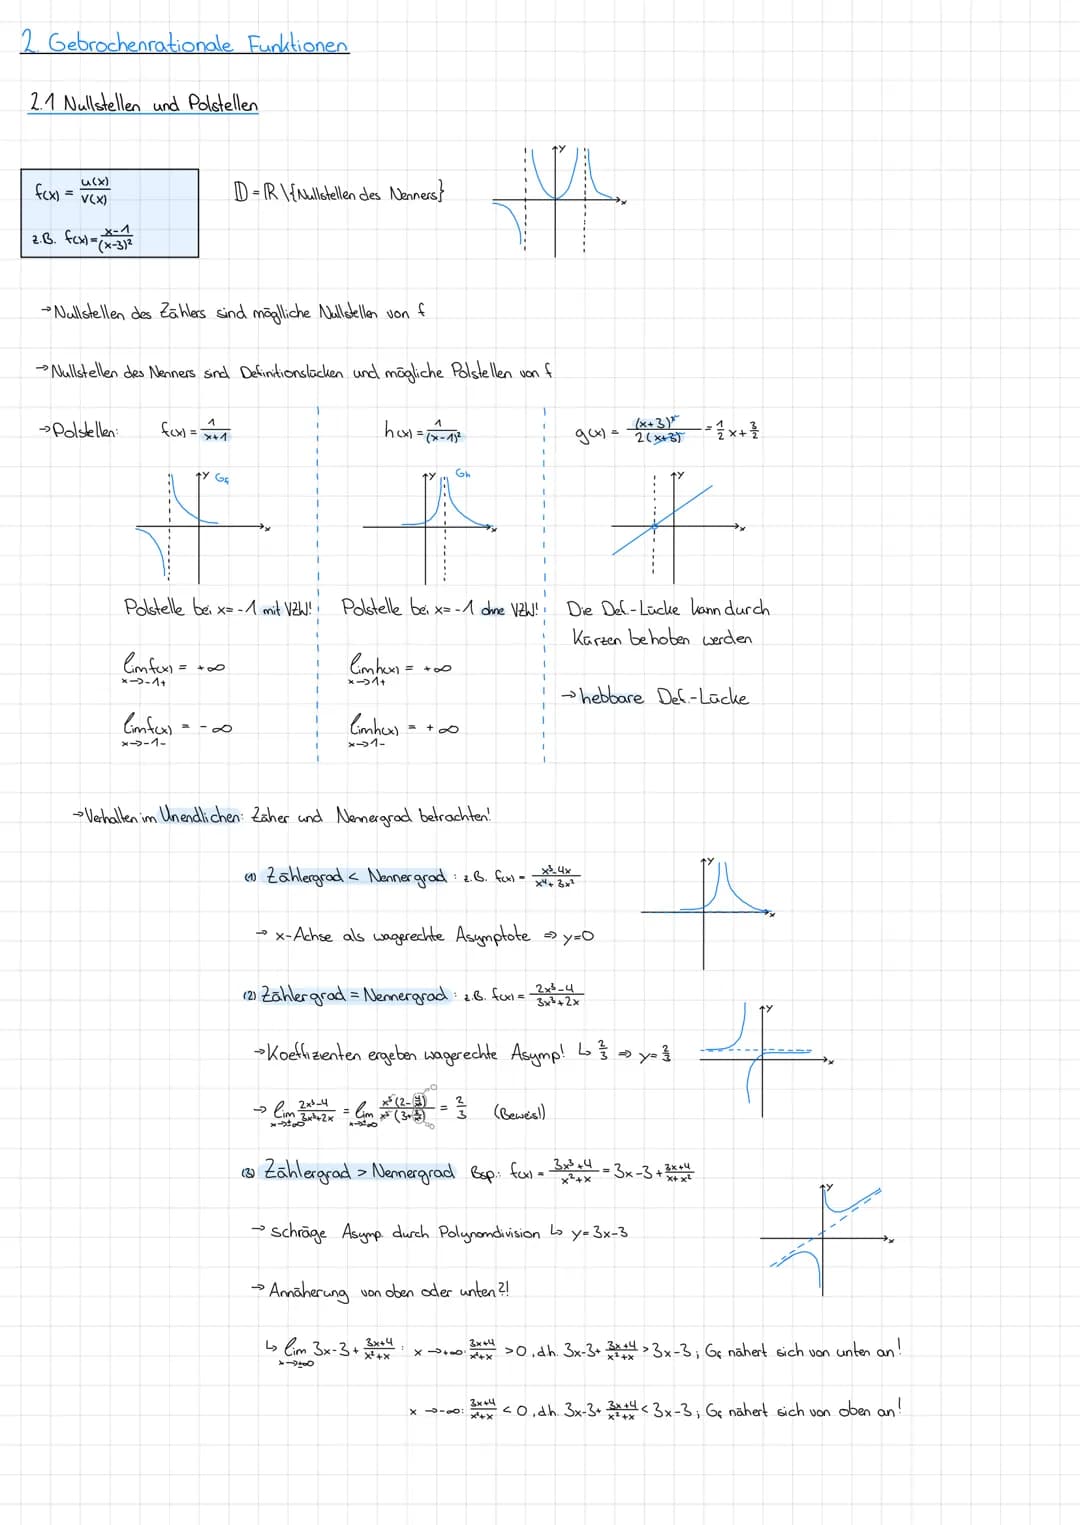 2. Gebrochenrationale Funktionen
2.1 Nullstellen und Polstellen
f(x) = u(x)/v(x)
z.B. f(x) = x-1/(x-3)²
𝔻 = ℝ \ {Nullstellen des Nenners}
y
x
→ Nullstellen des Zählers sind möglliche Nullstellen von f
→ Nullstellen des Nenners sind Definitionslücken und mögliche Polstellen von f
→ Polstellen: f(x) = 1/x+1
h(x) = 1/(x-1)²
g(x) = (x+3)²/2(x+3) = 1/2 x + 3/2
y Gf
x
y Gh
x
y
x
Polstelle bei x=-1 mit VZW!
Polstelle bei x=-1 ohne VZW!
Die Def.-Lücke kann durch
Kürzen behoben werden
lim f(x) = +∞
x→-1+
lim h(x) = +∞
x→1+
→ hebbare Def.-Lücke
lim f(x) = -∞
x→-1-
lim h(x) = +∞
x→1-
→ Verhalten im Unendlichen: Zäher und Nennergrad betrachten!
(1) Zählergrad < Nennergrad : z.B. f(x) = x³-4x/x⁴+3x²
y
x
→ x-Achse als wagerechte Asymptote ⇒ y=0
(2) Zählergrad = Nennergrad : z.B. f(x) = 2x³-4/3x³+2x
y
x
→ Koeffizienten ergeben wagerechte Asymp! ↳ 2/3 ⇒ y=2/3
→ lim 2x³-4/3x³+2x = lim x³(2-4/x³)/x³(3+2/x²) = 2/3 (Beweis!)
x→±∞ x→±∞
(3) Zählergrad > Nennergrad Bsp.: f(x) = 3x³+4/x²+x = 3x-3 + 3x+4/x+x²
y
x
→ schräge Asymp. durch Polynomdivision ↳ y=3x-3
→ Annäherung von oben oder unten?!
↳ lim 3x-3 + 3x+4/x²+x : x→+∞: 3x+4/x²+x >0, dh. 3x-3+ 3x+4/x²+x > 3x-3; Gf nähert sich von unten an!
x→±∞
x→-∞: 3x+4/x²+x <0, dh. 3x-3+ 3x+4/x²+x < 3x-3; Gf nähert sich von oben an!